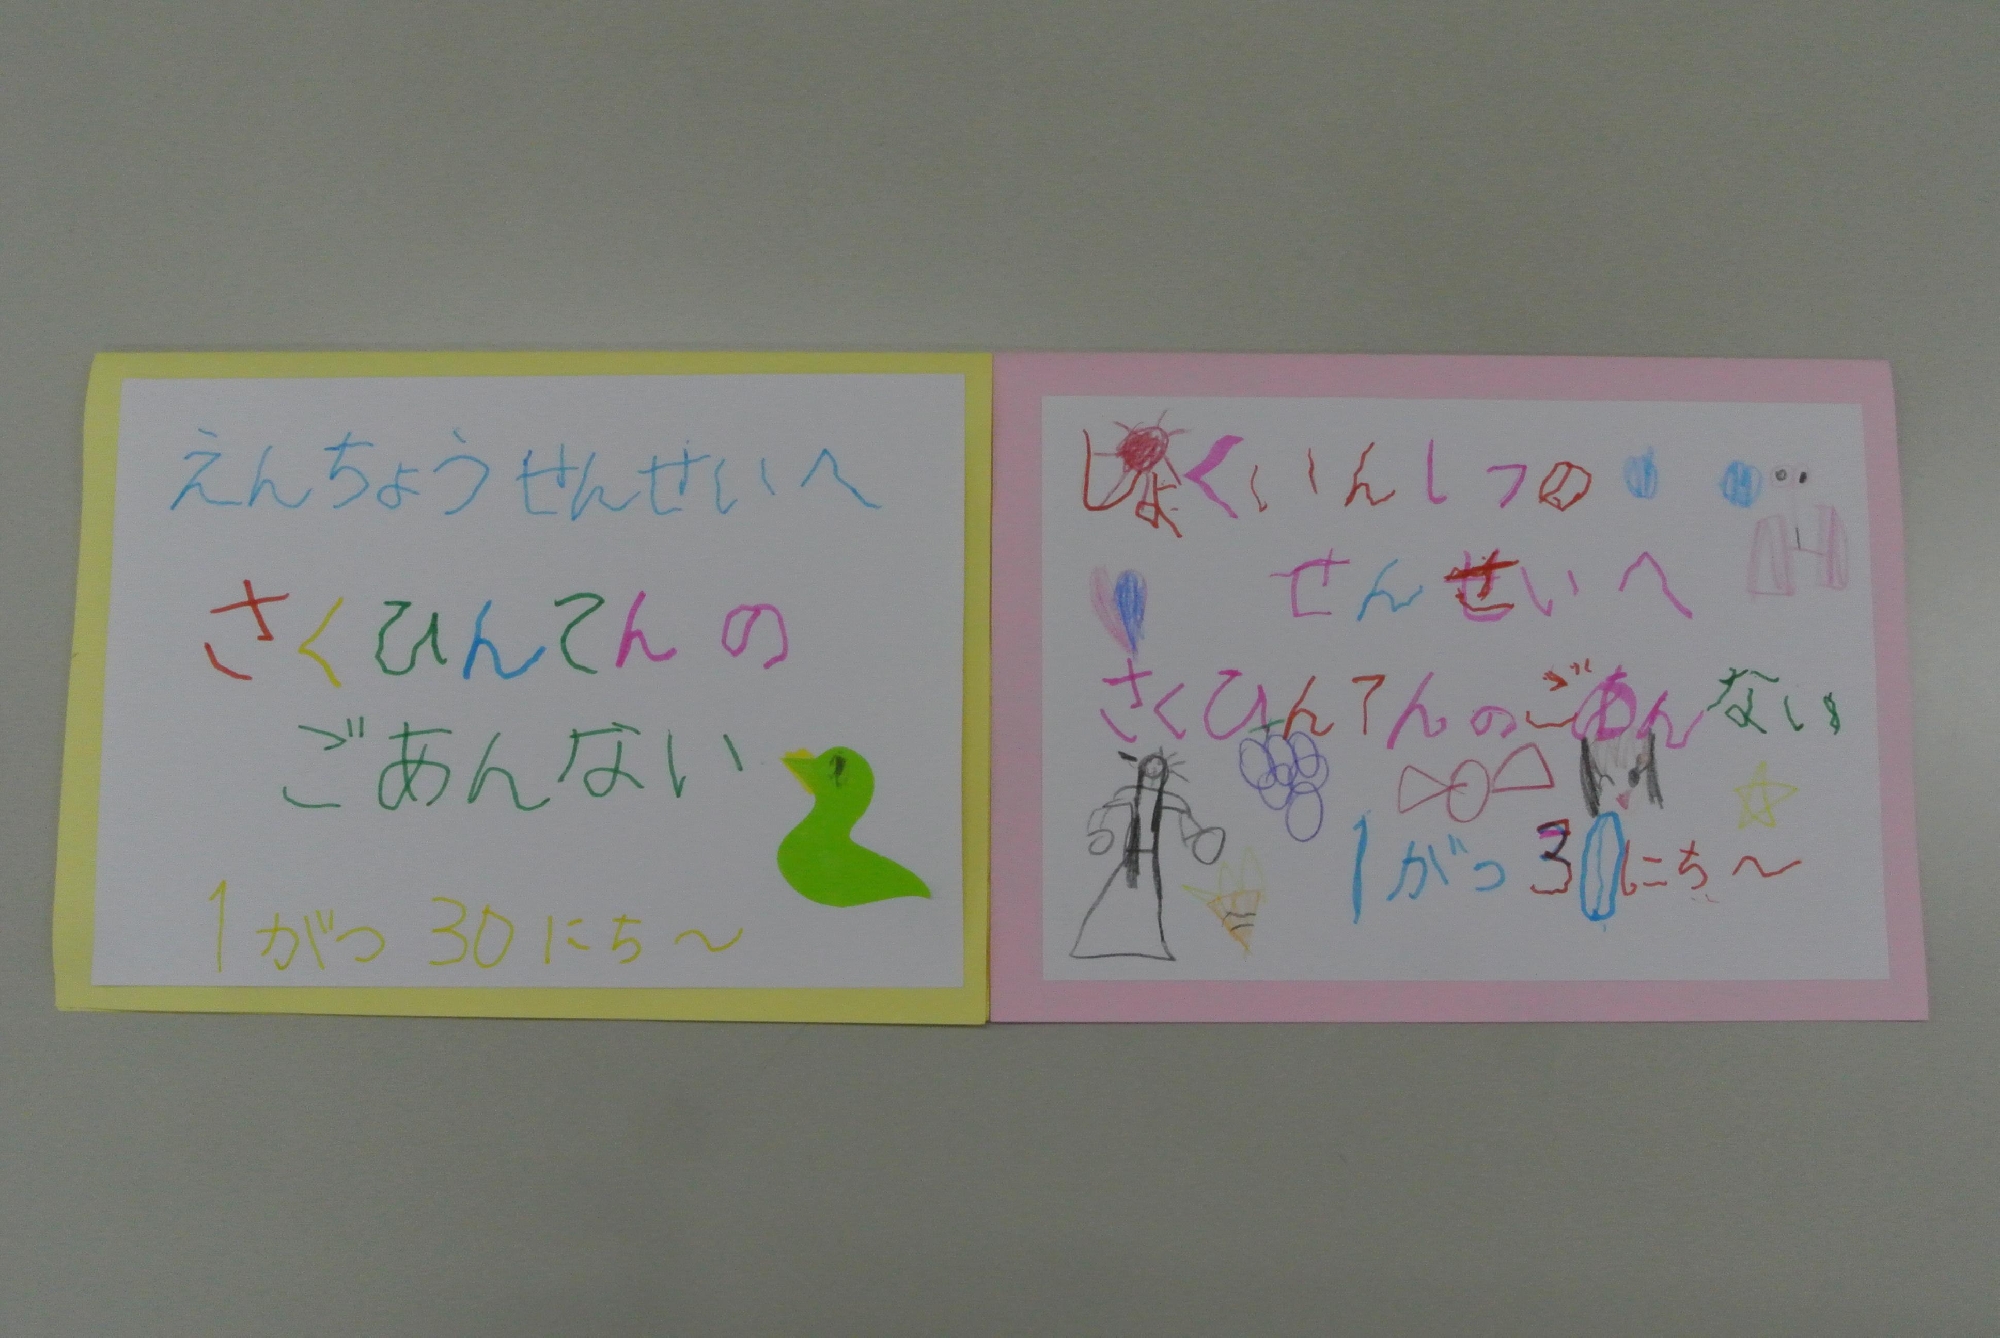 えんちょうせんせいへ
さくひんてんの
ごあんない
1がつ30にち～
しょくいんしつの
せんせいへ
さくひんてんのごあんない
1がつ30にち～